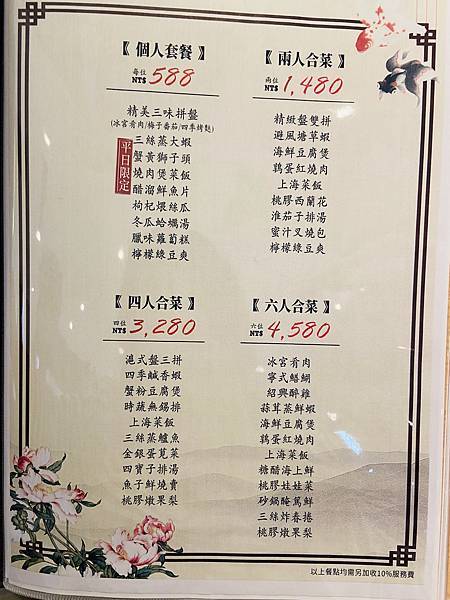 【 個人套餐 】
每位
NT$ 588
精美三味拼盤
(冰宮肴肉/梅子番茄/四季烤麩)
平日限定
三絲蒸大蝦
蟹黃獅子頭
燒肉煲菜飯
醋溜鮮魚片
枸杞煨絲瓜
冬瓜蛤蠣湯
臘味蘿蔔糕
檸檬綠豆爽
【 兩人合菜 】
兩位
NT$ 1,480
精緻盤雙拼
避風塘草蝦
海鮮豆腐煲
鵪蛋紅燒肉
上海菜飯
桃膠西蘭花
淮茄子排湯
蜜汁叉燒包
檸檬綠豆爽
【 四人合菜 】
四位
NT$ 3,280
滬式盤三拼
四季鹹香蝦
蟹粉豆腐煲
時蔬無錫排
上海菜飯
三絲蒸鱸魚
金銀蛋莧菜
四寶子排湯
魚子鮮燒賣
桃膠燉果梨
【 六人合菜 】
六位
NT$ 4,580
冰宮肴肉
寧式鱔糊
紹興醉雞
蒜茸蒸鮮蝦
海鮮豆腐煲
鵪蛋紅燒肉
上海菜飯
糖醋海上鮮
桃膠娃娃菜
砂鍋醃篤鮮
三絲炸春捲
桃膠燉果梨
以上餐點均需另加收10%服務費